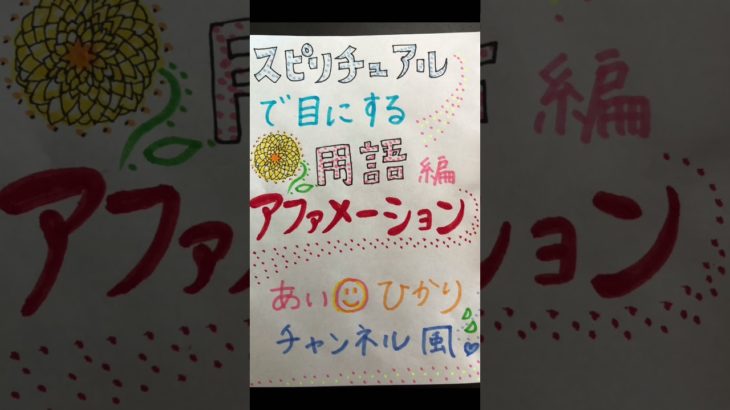 スピリチュアル
で目にする
用語編
アファメーション
あい ひかり
チャンネル風